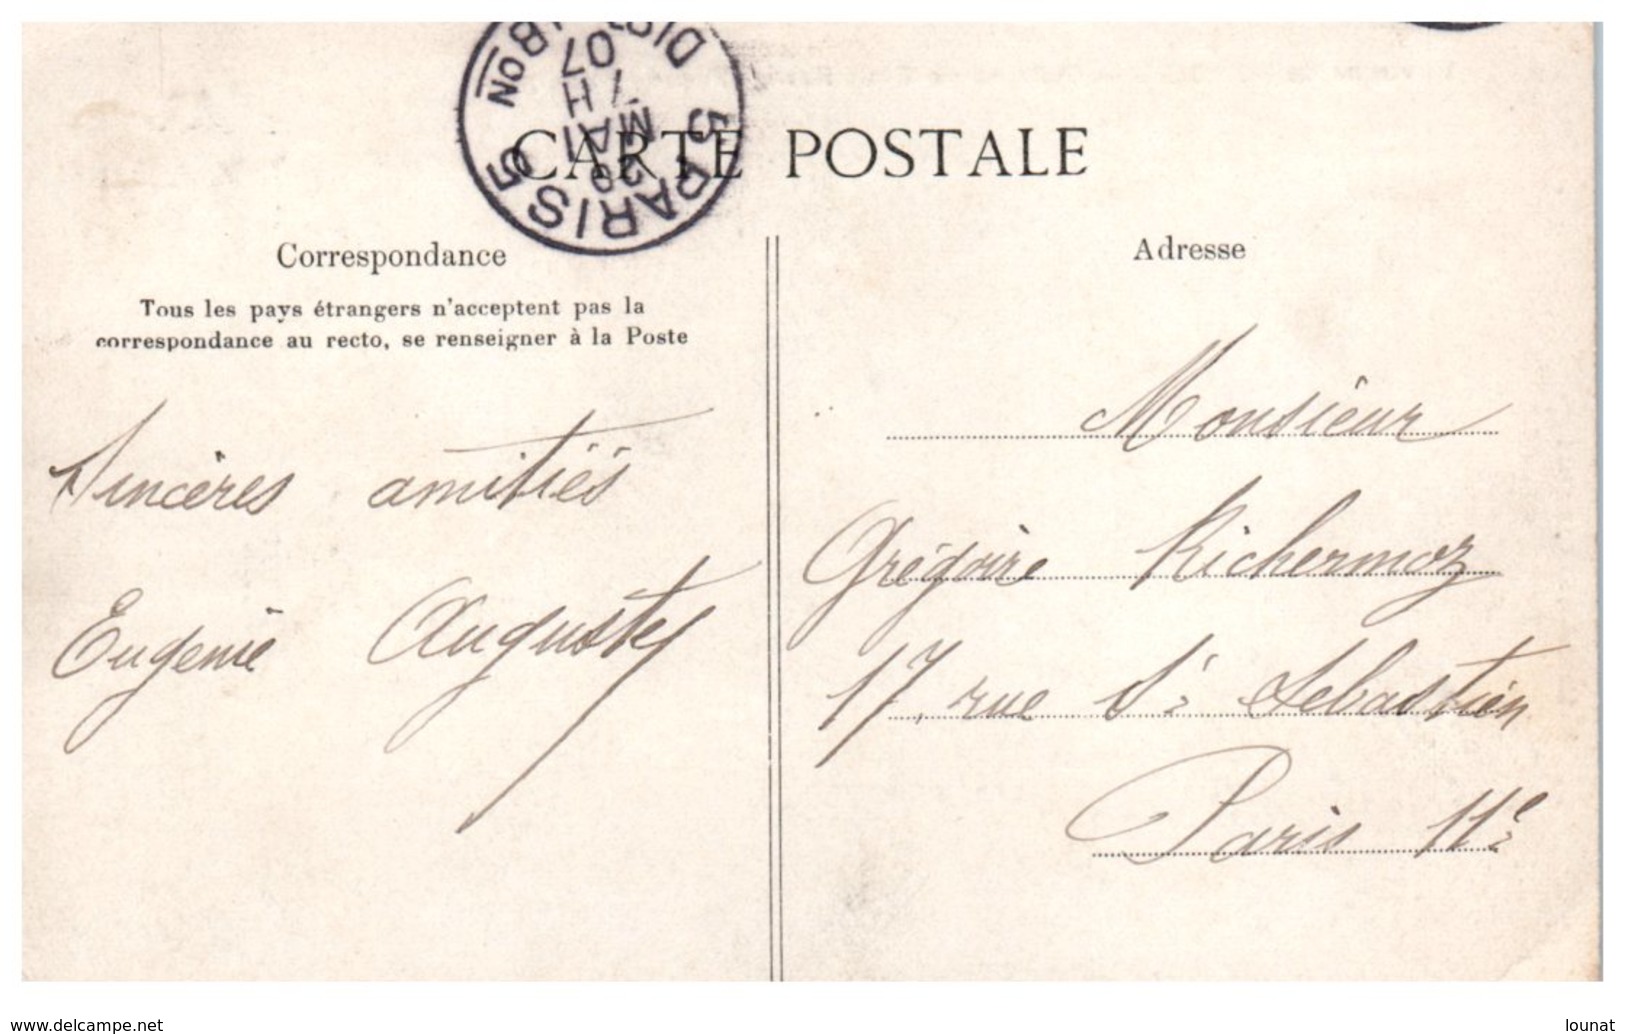 CARTE POSTALE
5 PARIS 5
DIS BON
7 H
29
MAI
07
Correspondance
Tous les pays étrangers n'acceptent pas la
correspondance au recto, se renseigner à la Poste
Sincères amitiés
Eugenie Auguste
Adresse
Monsieur
Grégoire Richermoz
17, rue St Sebastien
Paris 11e
www.delcampe.net
lounat